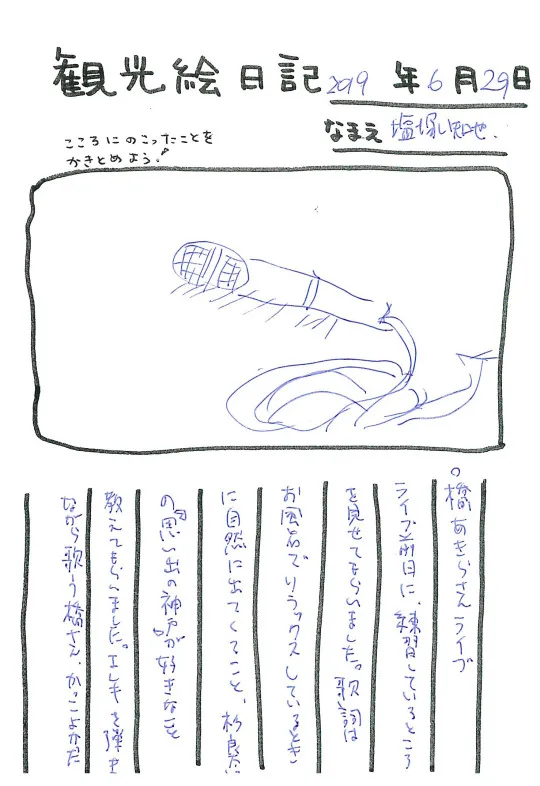 観光絵日記 2019年6月29日
なまえ 塩塚
こころにのこったことを
かきとめよう!
○橋あきらさんライブ
ライブ前日に、練習しているところ
を見せてもらいました。歌詞は
お風呂でリラックスしているとき
に自然に出てくること、杉良太
の“思い出の神戸”が好きなこと
教えてもらいました。エレキを弾き
ながら歌う橋さん、かっこよかた